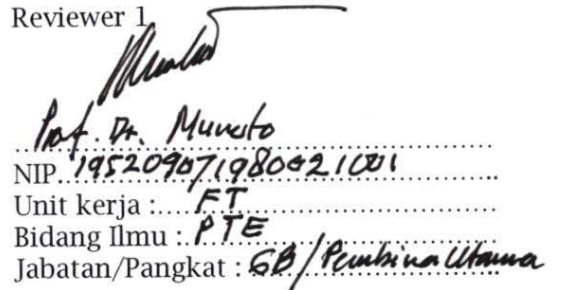 Reviewer 1
Prof. Dr. Munoto
NIP. 195209071980021001
Unit kerja : FT
Bidang Ilmu : PTE
Jabatan/Pangkat : GB/Pembina Utama